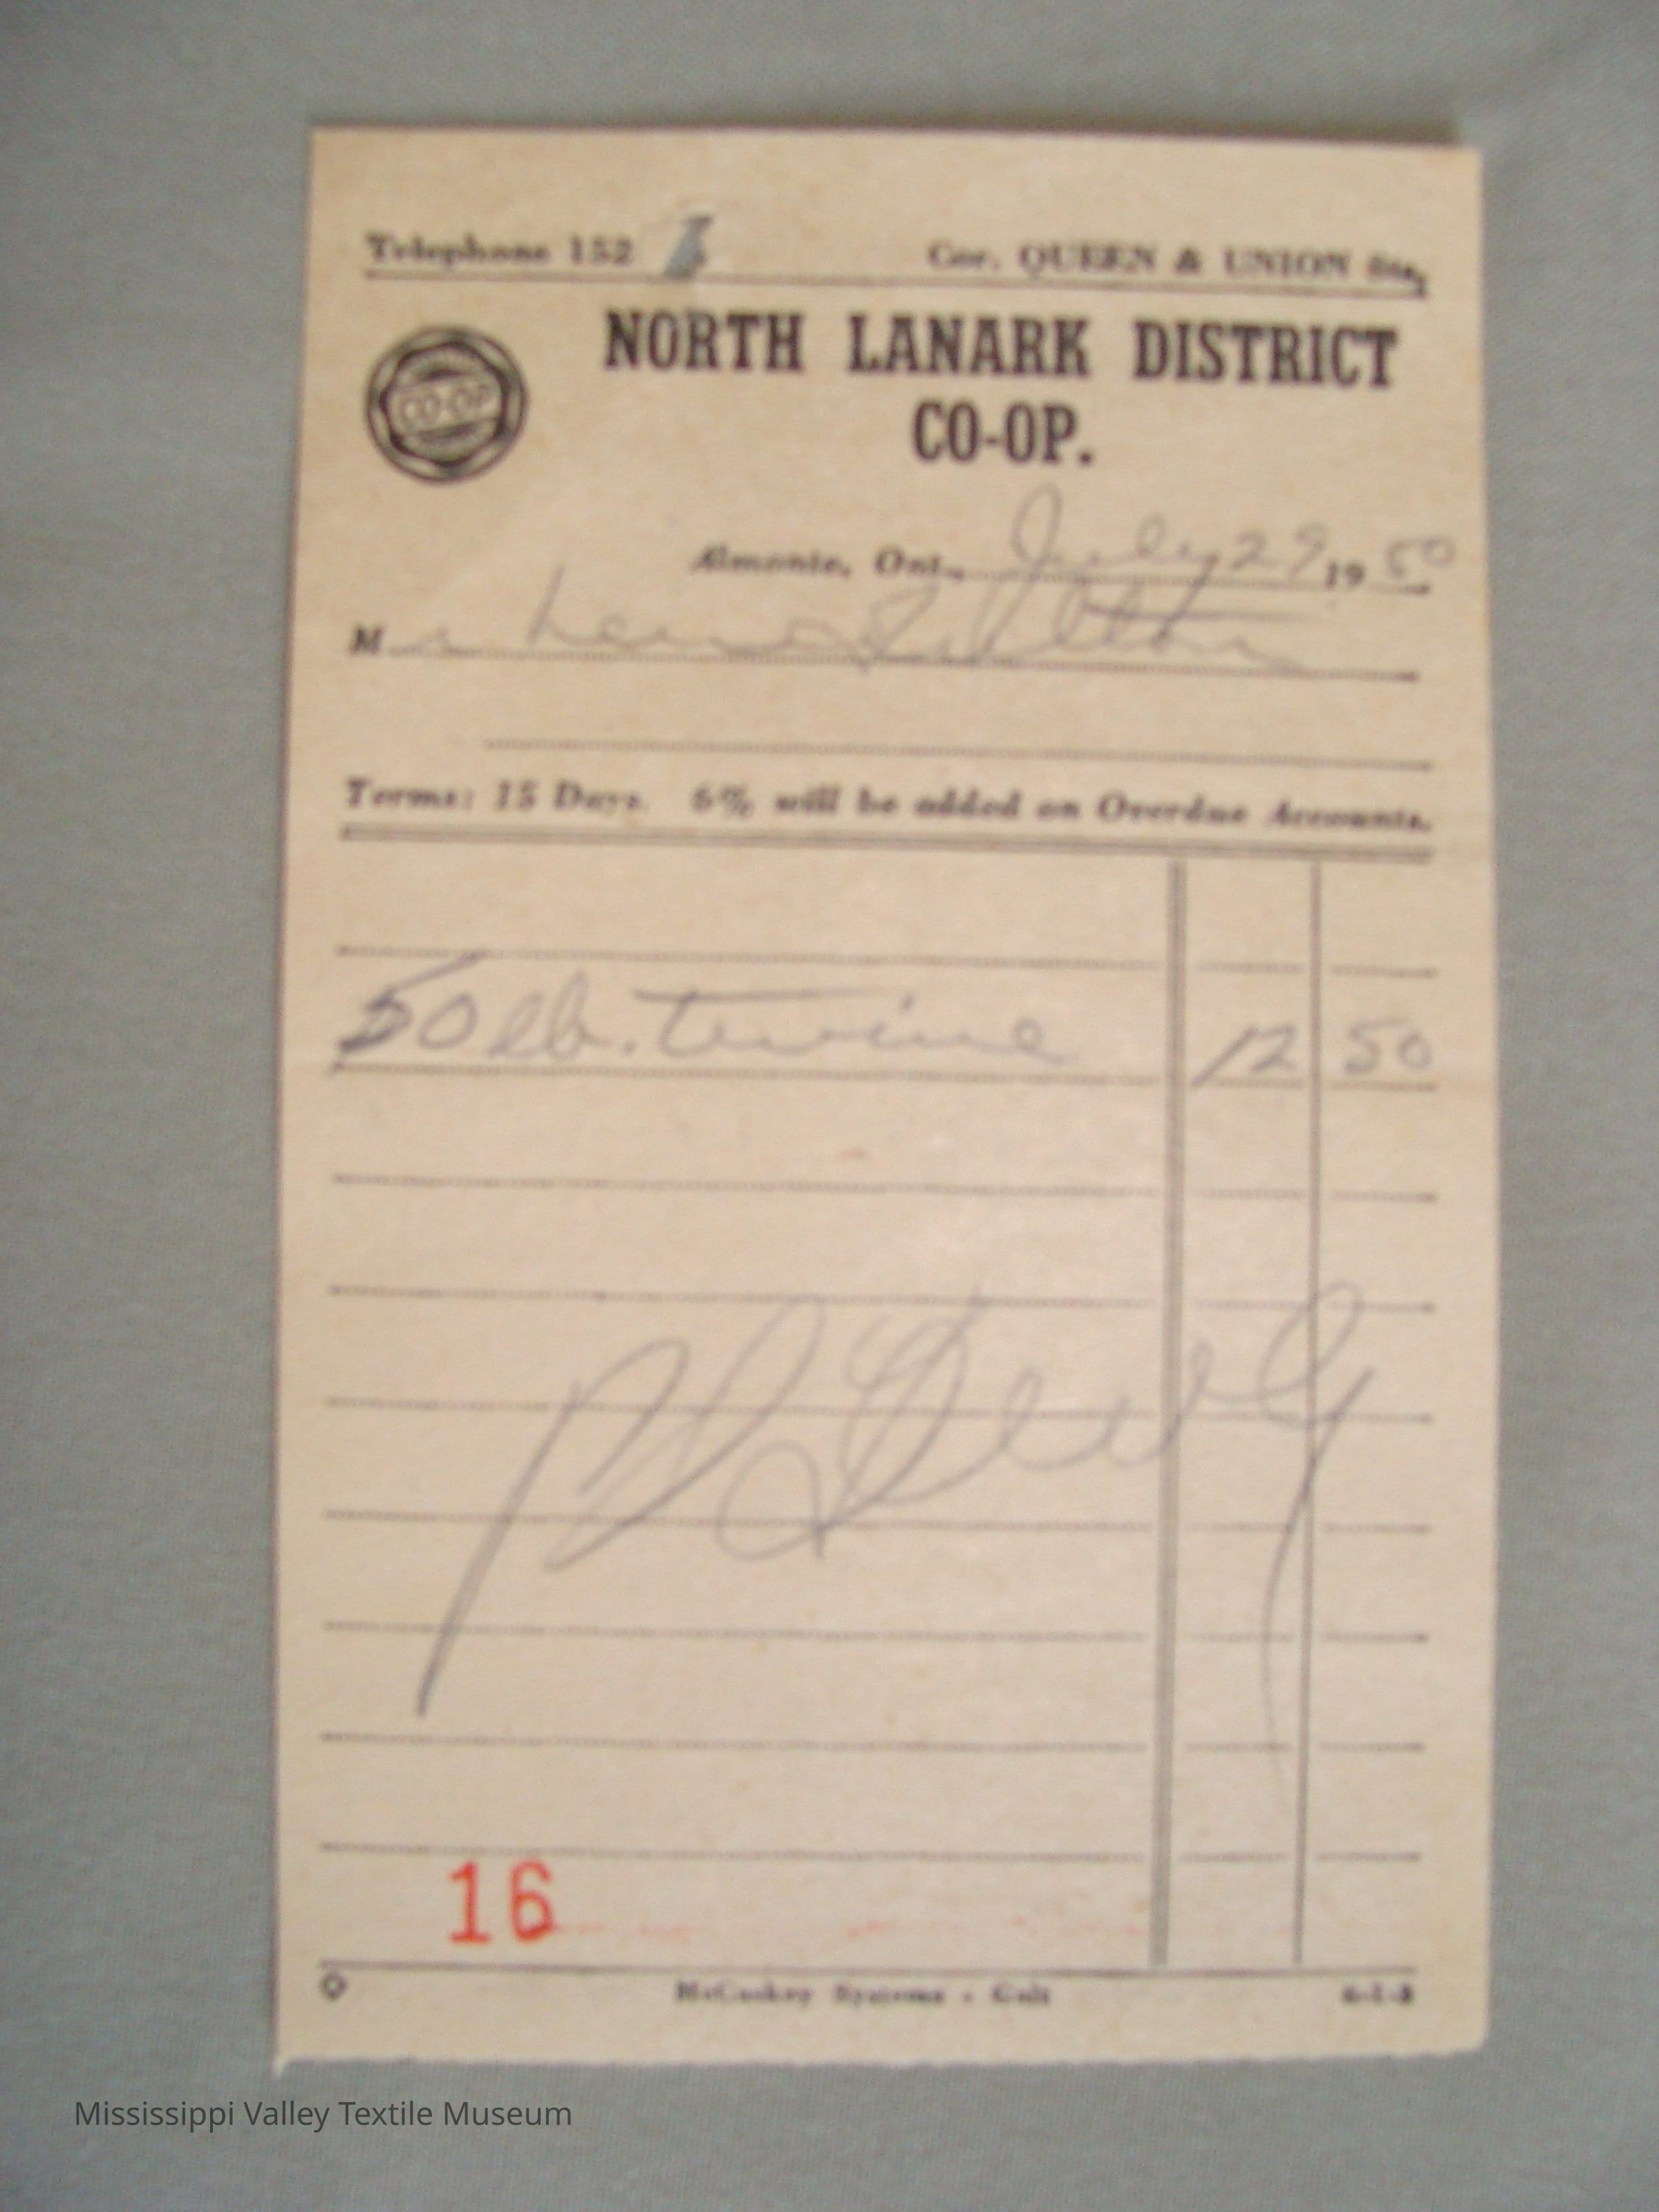 Telephone 152
Cor. QUEEN & UNION Sts.
NORTH LANARK DISTRICT
CO-OP.
CO-OP
Almonte, Ont., July 29 1950
Mr
Terms: 15 Days. 6% will be added on Overdue Accounts.
50 lb. twine 12 50
16
McCaskey Systems - Galt
Mississippi Valley Textile Museum